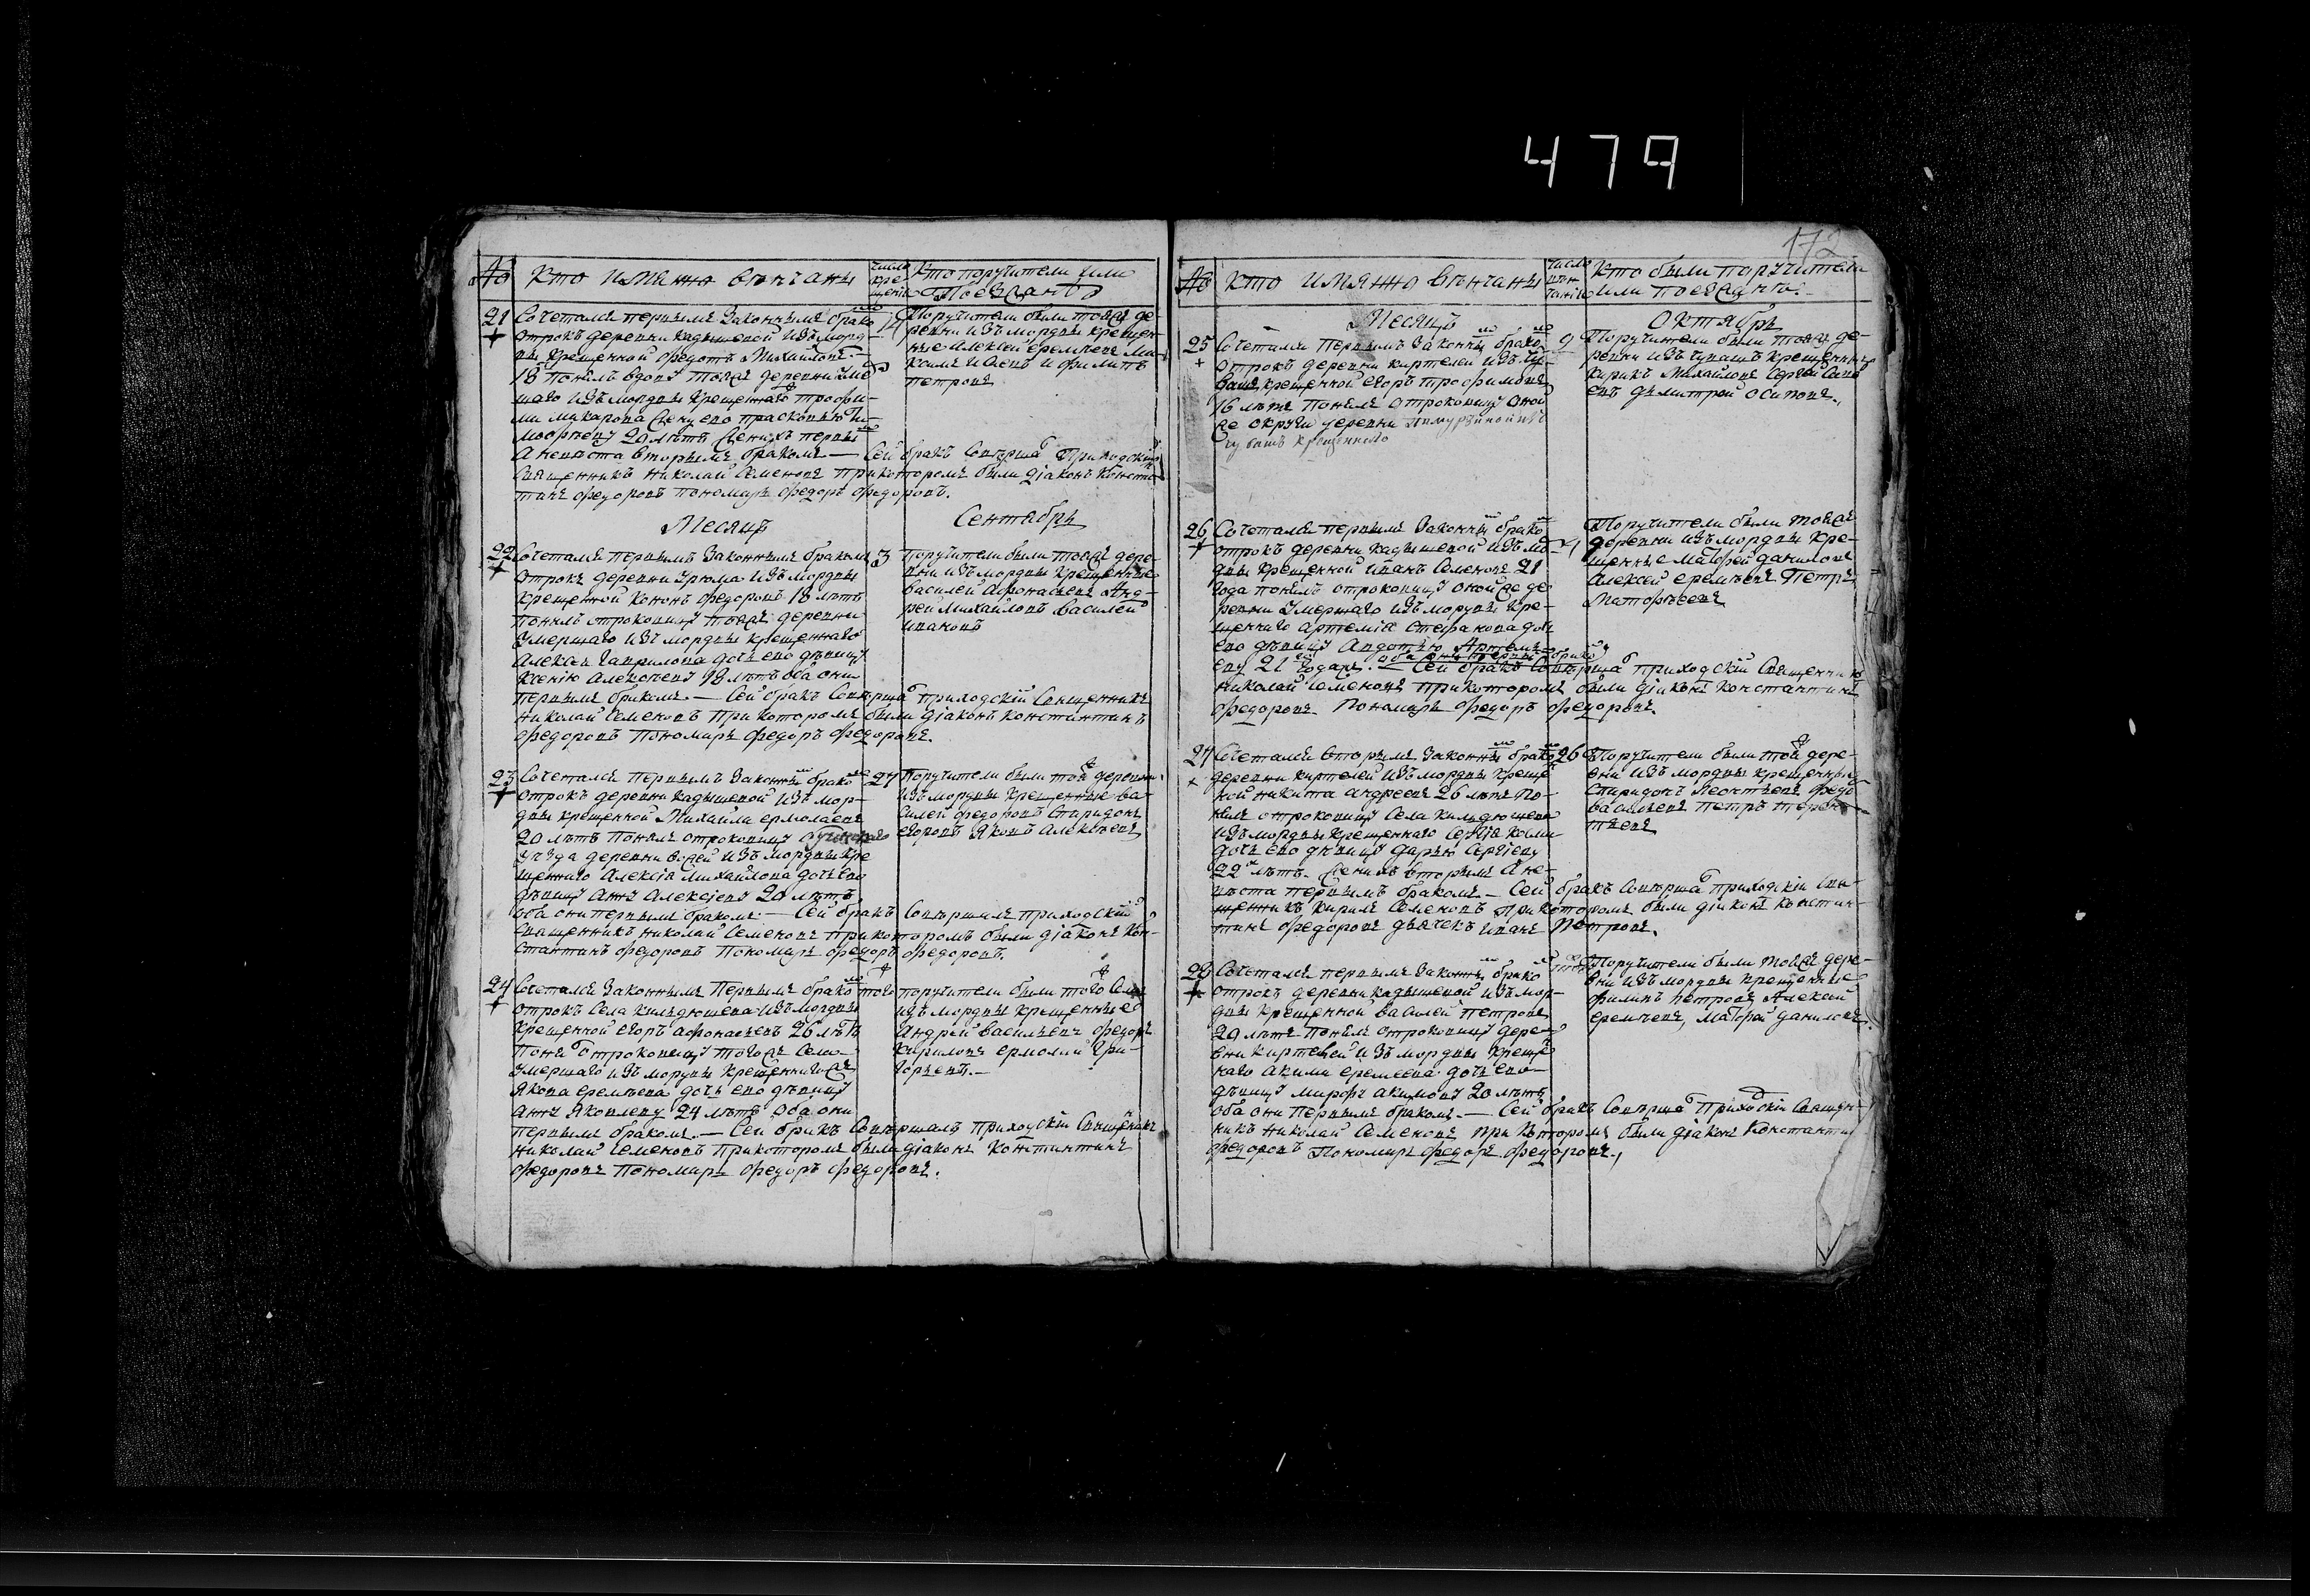 479
172
№ кто имянно венчаны
число
кре
щенiя
Кто поручители или
поезжанѣ
21 Сочетался первымъ законнымъ брако
отрокъ деревни кадышевой изъ морд-
вы крещенной федотъ Михайловъ
18 понялъ вдову тояже деревни уме
шаго изъ мордвы крещеннаго трофи-
ма макарова жену ево прасковью Ти-
мофѣеву 20 лѣтъ женихъ первы
а невѣста вторымъ бракомъ — Сей бракъ Соверша приходскiй
Священникъ Николай Семеновъ при которомъ были дiаконъ Констан
тинъ федоровъ пономарь федоръ федоровъ.
14 Поручители были тояже де
ревни изъ мордвы крещен-
ные Алексей еремѣевъ Ма-
и филипъ
петровъ
Месяцъ Сентябрь
22 Сочетался первымъ законнымъ бракомъ 3
отрокъ деревни Урюма изъ мордвы
крещенной кононъ федоровъ 18 лѣтъ
понялъ отроковицу тояже деревни
умершаго изъ мордвы крещеннаго
Алексея гаврилова дочь ево дѣвицу
Ксенiю Алексѣеву 18 лѣтъ оба они
первымъ бракомъ. — Сей бракъ Соверша приходскiй Священникъ
Николай Семеновъ при которомъ были дiаконъ константинъ
федоровъ пономарь федоръ федоровъ.
поручители были тояже дере
вни изъ мордвы крещенные
василей Афонасьевъ Анд-
рей михайловъ василей
ивановъ
23 Сочетался первымъ законны брако 27
отрокъ деревни кадышевой изъ мор-
двы крещенной Михайла ермолаевъ
20 лѣтъ понялъ отроковицу
уѣзда деревни изъ мордвы кре
щеннаго Алексiя михайлова дочь ево
дѣвицу Анну Алексiеву 20 лѣтъ
оба они первымъ бракомъ — Сей бракъ Совершилъ приходскiй
Священникъ Николай Семеновъ при которомъ были дiаконъ Кон-
стантинъ федоровъ пономарь федоръ федоровъ.
Поручители были той деревни
изъ мордвы крещенные ва-
силей федоровъ Спиридонъ
егоровъ Яковъ Алексѣевъ
24 Сочетался законнымъ первымъ брако того
отрокъ Села кильдюшева изъ мордвы
крещенной егоръ афонасьевъ 26 лѣтъ
поня отроковицу тогоже Села
умершаго изъ мордвы крещеннаго
Якова еремѣева дочь ево дѣвицу
Анну Яковлеву 24 лѣтъ оба они
первымъ бракомъ. — Сей бракъ Совершалъ приходскiй Священикъ
Николай Семеновъ при которомъ были дiаконъ Константинъ
федоровъ пономарь федоръ федоровъ.
поручители были того Села
изъ мордвы крещенные
Андрей васильевъ федоръ
кириловъ ермолай гри-
горьевъ.
№ кто имянно венчаны
число
вѣн
чанiя
Кто были поручители
или поезжанѣ.
Месяцъ Октябрь
25 Сочетался первымъ законны брако 9
отрокъ деревни киртелей изъ чу-
вашъ крещенной егоръ трофимовъ
16 лѣтъ понялъ отроковицу оной
же округи деревни изъ
чувашъ крещеннаго
Поручители были тояже де-
ревни изъ чувашъ крещенныя
кирикъ михайловъ Сергей
дмитрей осиповъ.
26 Сочетался первымъ законны брако 21
отрокъ деревни кадышевой изъ мо-
двы крещенной иванъ Семеновъ 21
года понялъ отроковицу онойже де
ревни умершаго изъ мордвы кре-
щеннаго артемiя стефанова доч
ево дѣвицу Авдотью Артемь-
еву 21 года. оба они первы брако
Сей бракъ Соверша приходскiй Священникъ
Николай Семеновъ при которомъ были дiаконъ константинъ
федоровъ пономарь федоръ федоровъ.
Поручители были тояже
деревни изъ мордвы кре-
щенные Матфей даниловъ
Алексей еремѣевъ Петръ
Матфѣевъ
27 Сочетался вторымъ законны брако 26
деревни киртелей изъ мордвы креще
ной никита андреевъ 26 лѣтъ по-
нялъ отроковицу Села кильдюшева
изъ мордвы крещеннаго Сергiя козми
дочь ево дѣвицу дарью Сергiеву
22 лѣтъ. Женихъ вторымъ а не-
вѣста первымъ бракомъ. — Сей бракъ Соверша приходскiй Свя-
щенникъ кирилъ Семеновъ при которомъ были дiаконъ констан-
тинъ федоровъ дьячекъ иванъ Петровъ.
Поручители были той дере-
вни изъ мордвы крещенныя
Спиридонъ Леонтьевъ федо
васильевъ Петръ терен-
тьевъ
28 Сочетался первымъ законны брако
отрокъ деревни кадышевой изъ мор-
двы крещенной василей петровъ
20 лѣтъ понялъ отроковицу дере-
вни киртелей изъ мордвы креще
наго акима еремеева дочь ево
дѣвицу марфу акимову 20 лѣтъ
оба они первымъ бракомъ. — Сей бракъ Соверша Приходскiй Священ-
никъ Николай Семеновъ при которомъ были дiаконъ Константин
федоровъ Пономарь федоръ федоровъ.
Поручители были тояже дере-
вни изъ мордвы крещенные
филипъ петровъ Алексей
еремѣевъ, Матфей даниловъ.